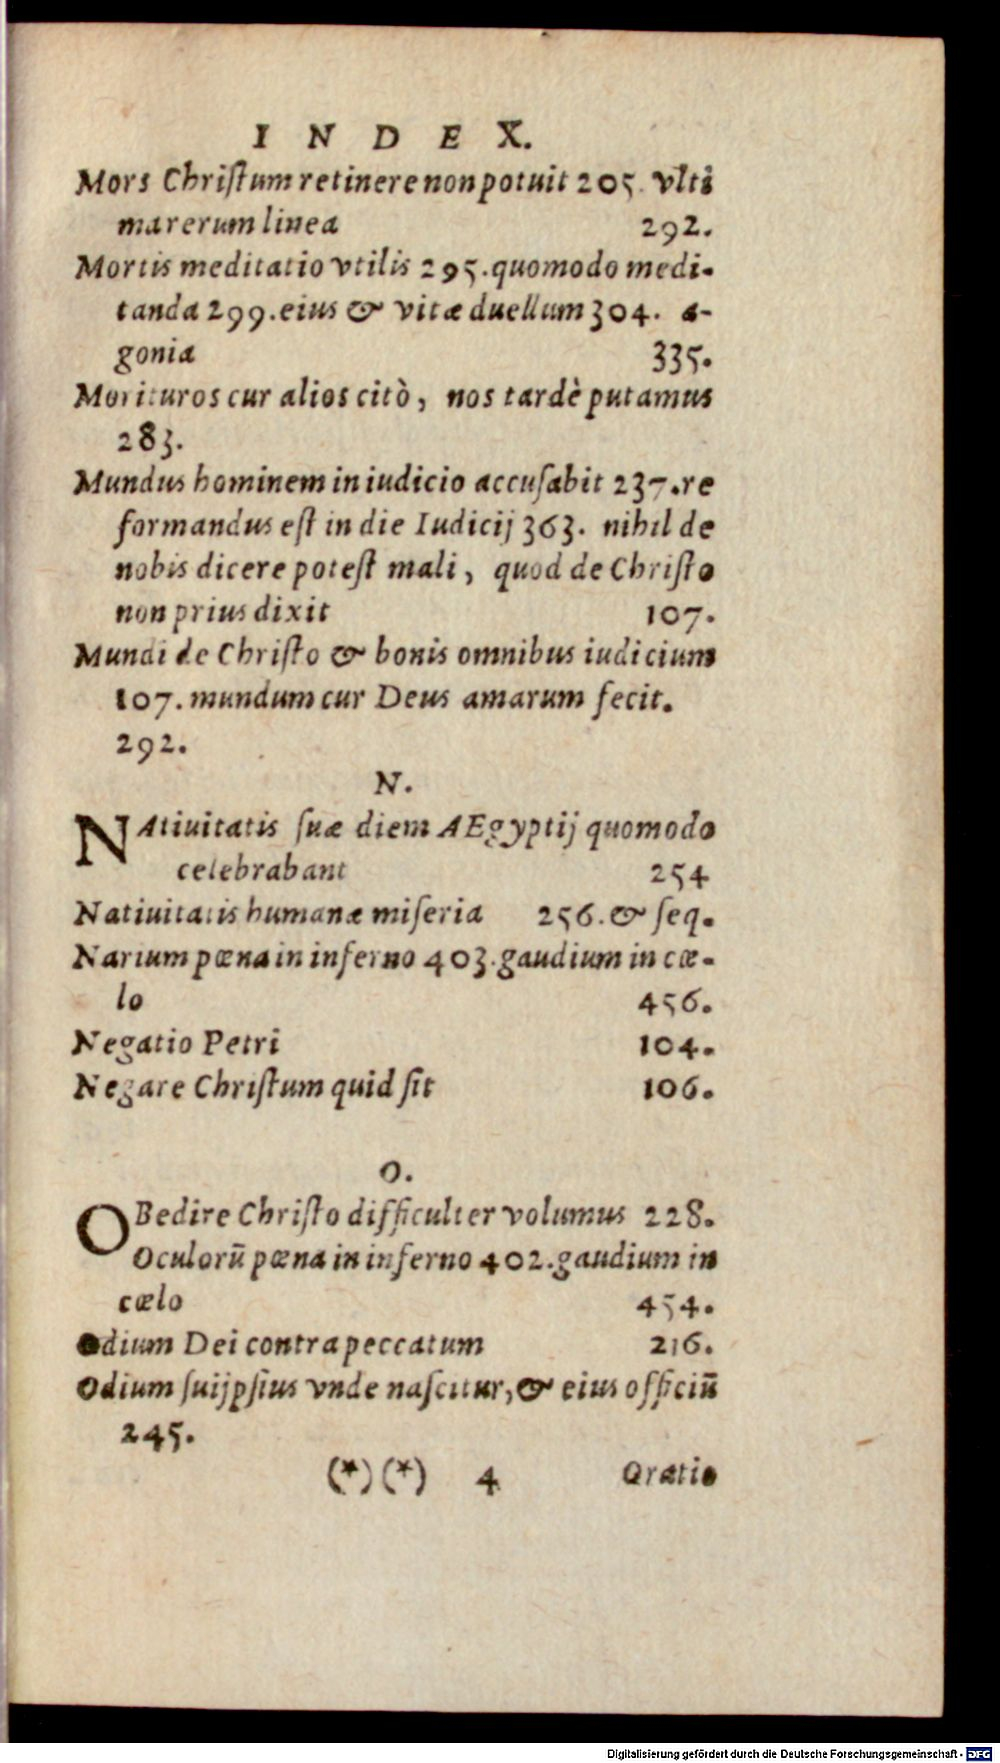 INDEX.
Mors Chriſtum retinere non potuit 205. vlti
ma rerum linea 292.
Mortis meditatio vtilis 295. quomodo medi-
tanda 299. eius & vitæ duellum 304. a-
gonia 335.
Morituros cur alios citò, nos tardè putamus
283.
Mundus hominem in iudicio accuſabit 237. re
formandus eſt in die Iudicij 363. nihil de
nobis dicere poteſt mali, quod de Chriſto
non prius dixit 107.
Mundi de Chriſto & bonis omnibus iudicium
107. mundum cur Deus amarum fecit.
292.
N.
NAtiuitatis ſuæ diem AEgyptij quomodo
celebrabant 254
Natiuitatis humanæ miſeria 256. & ſeq.
Narium pœna in inferno 403. gaudium in cœ-
lo 456.
Negatio Petri 104.
Negare Chriſtum quid ſit 106.
O.
OBedire Chriſto difficulter volumus 228.
Oculorū pœna in inferno 402. gaudium in
cœlo 454.
Odium Dei contra peccatum 216.
Odium ſuijpſius vnde naſcitur, & eius officiū
245.
(*) (*) 4 Oratio
Digitalisierung gefördert durch die Deutsche Forschungsgemeinschaft - DFG